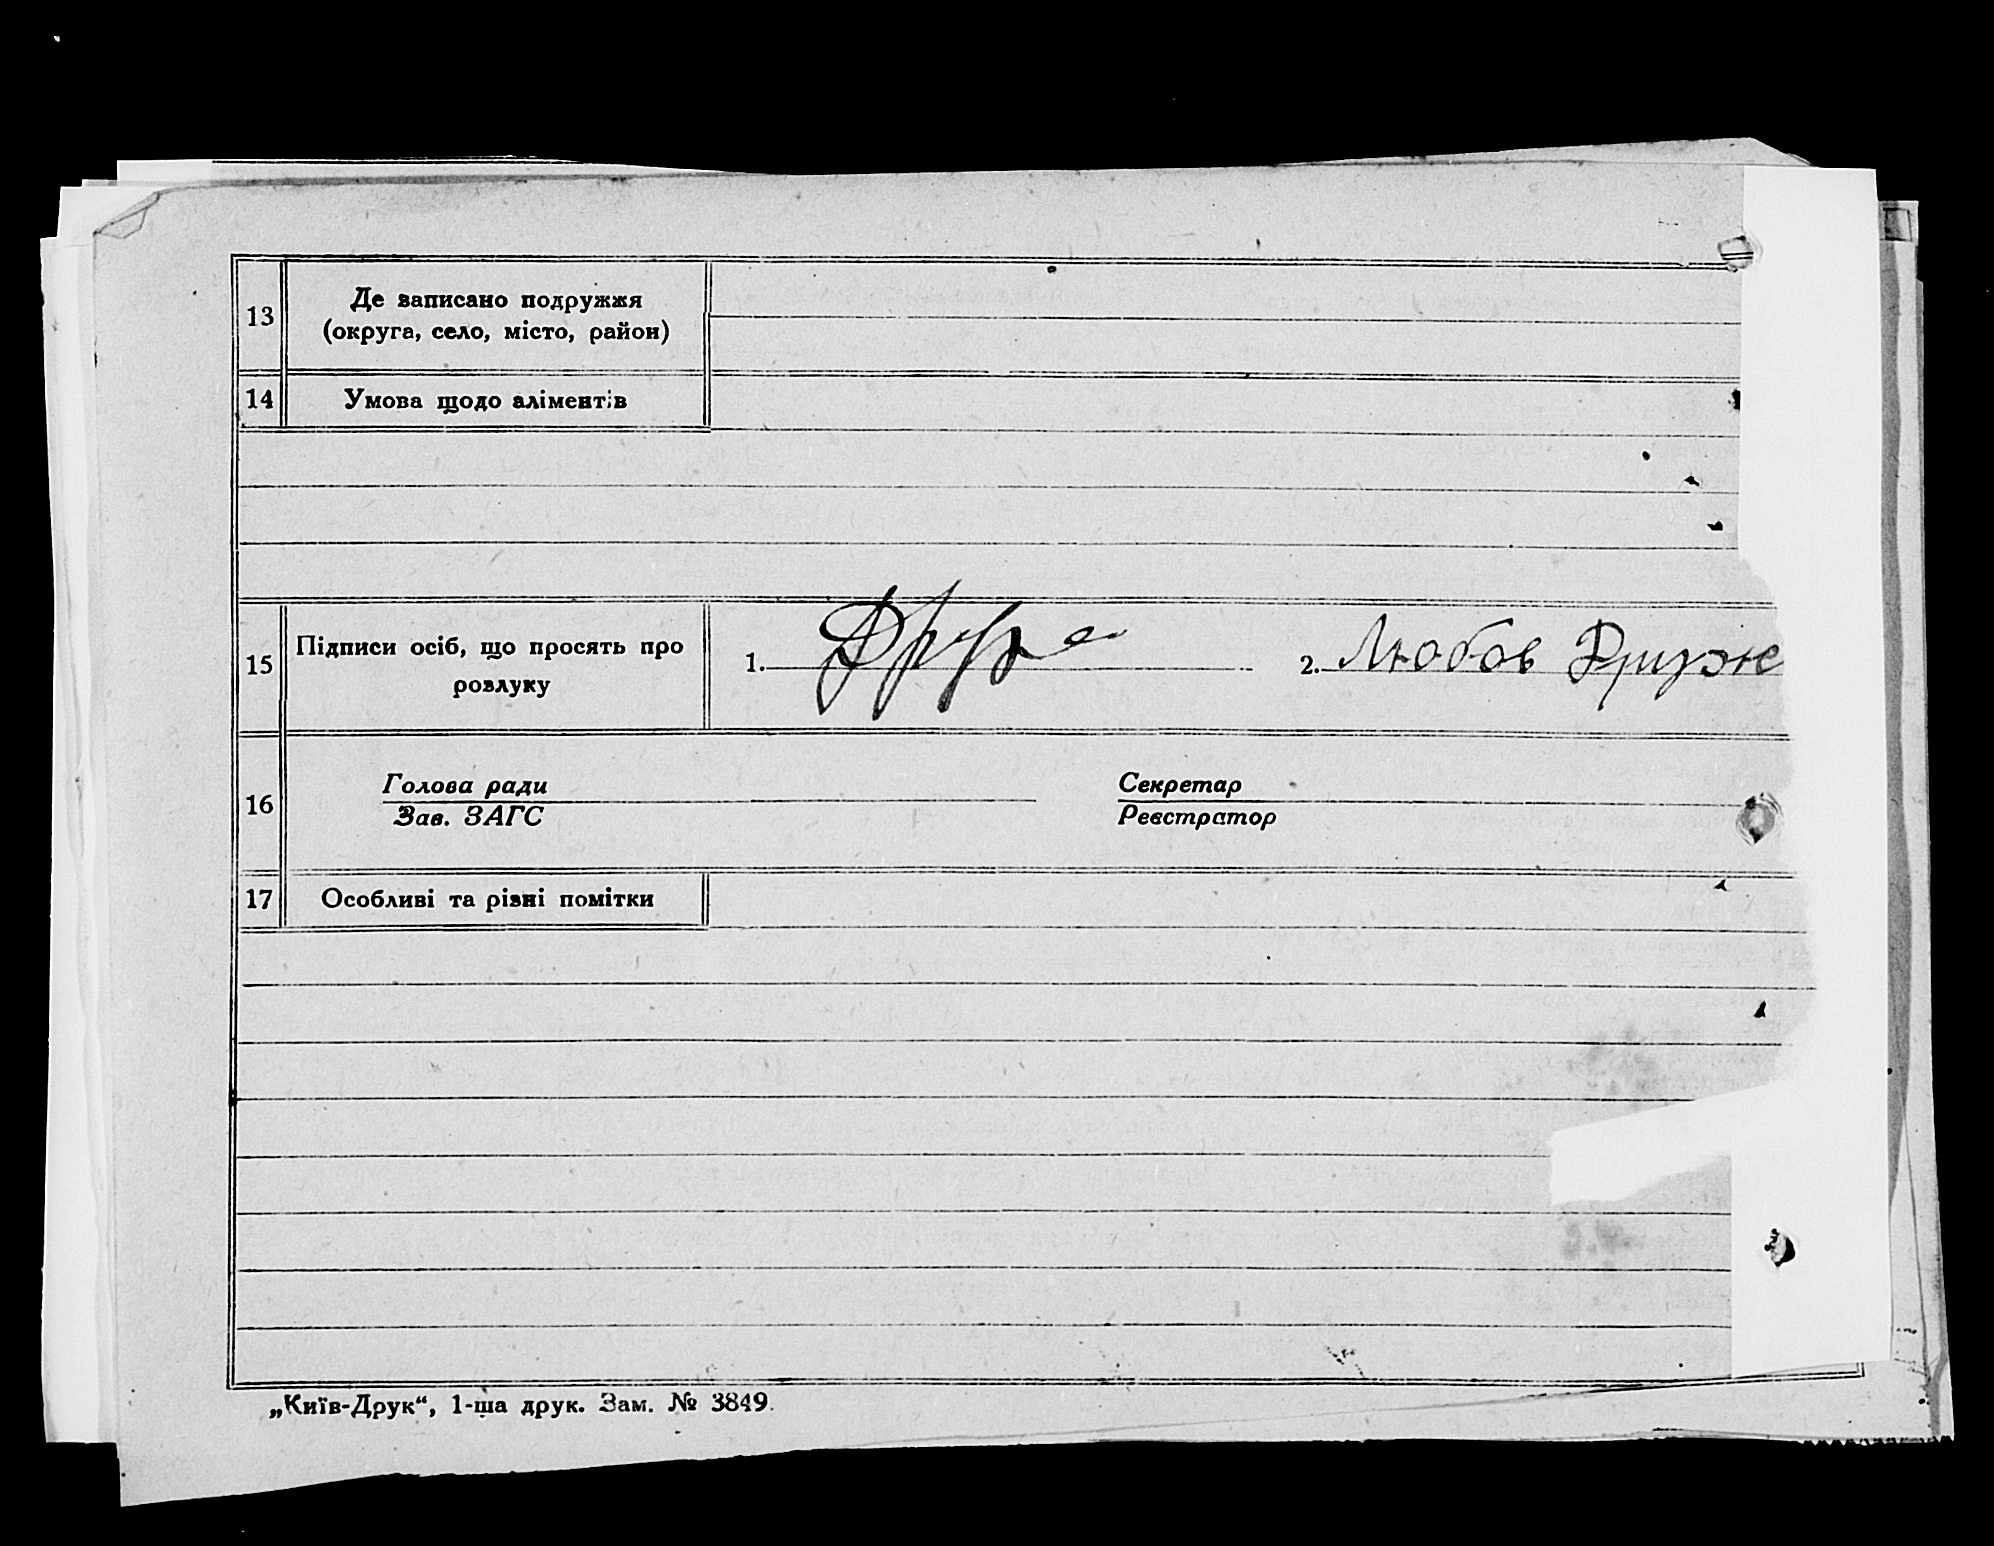 13
Де записано подружжя
(округа, село, місто, район)
14
Умова щодо аліментів
15
Підписи осіб, що просять про
розлуку
1.
2. Любов
16
Голова ради
Зав. ЗАГС
Секретар
Реєстратор
17
Особливі та різні помітки
„Київ-Друк“, 1-ша друк. Зам. № 3849.